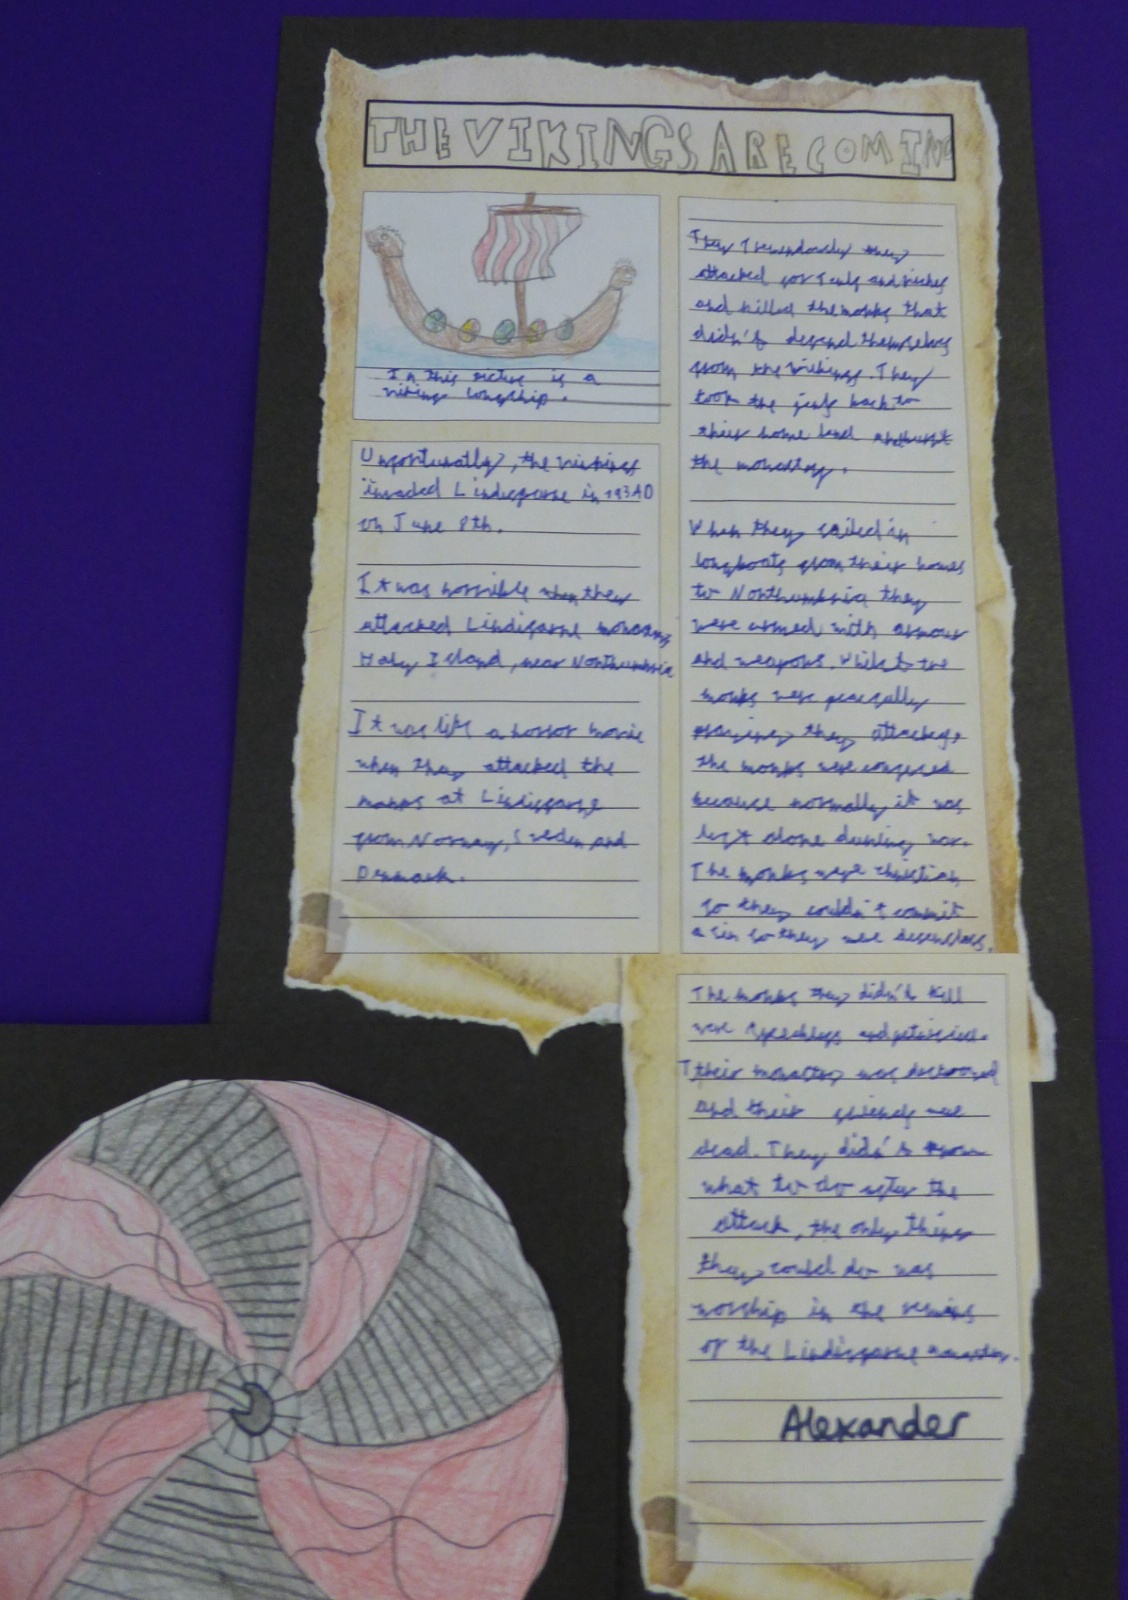 THE VIKINGS ARE COMING
In this picture is a
vikings longship.
Unfortunatly, the vikings
invaded Lindisfarne in 793AD
on June 8th.
It was horrible when they
attacked Lindisfarne
Holy Island, near Northumbria
It was like a horror movie
when they attacked the
monks at Lindisfarne
from Norway, Sweden and
Denmark.
They they
attacked for and riches
and killed the monks that
didn't defend themselves
from the vikings. They
took the back to
their home land
the monastery.
When they sailed in
longboats from their homes
to Northumbria they
were armed with armour
and weapons. Whilst the
monks were peacefully
praying they attacked,
the monks were confused
because normally it was
left alone during war.
The monks were christian
so they couldn't commit
a sin so they were
The monks they didn't kill
were and
their monastery was
and their friends were
dead. They didn't know
what to do after the
attack, the only thing
they could do was
worship in the
of the Lindisfarne
Alexander